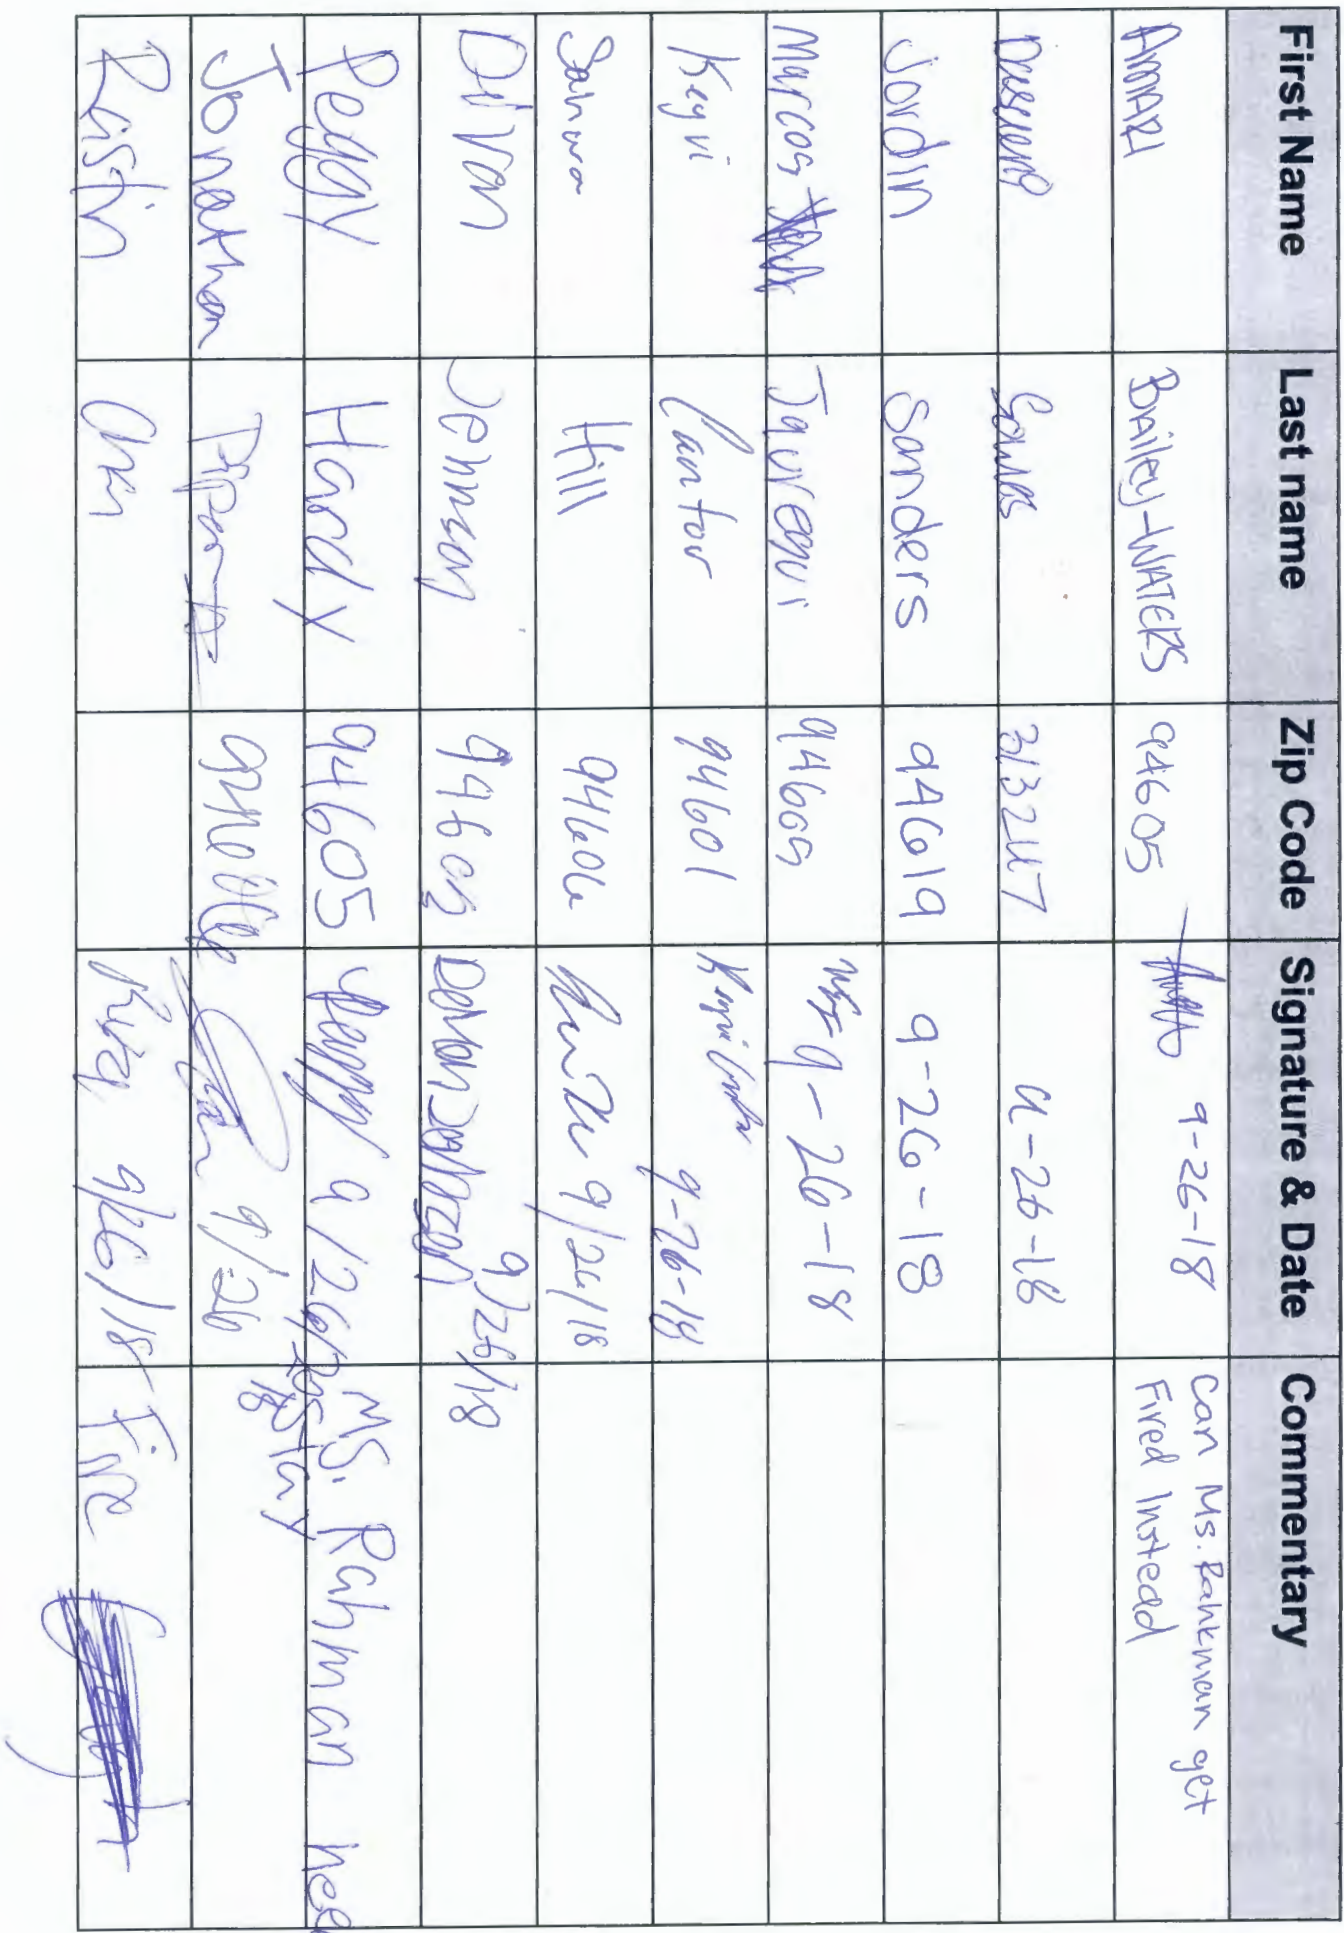 First Name Last name Zip Code Signature & Date Commentary
AMARI BAilEy-WATERS 94605 9-26-18 Can Ms. Rahkman get
Fired Instead
313247 9-26-18
Jordin Sanders 94619 9-26-18
Marcos Jauregui 94605 9-26-18
Keyvi Cantor 94601 Keyvi Cantor 9-26-18
Hill 94606 9/26/18
DeVon Johnson 94603 DeVon Johnson 9/26/18
Peggy Hardy 94605 Peggy 9/26/2018 MS. Rahman nee
to stay
Jonathan 9/26
9/26/18 Fire